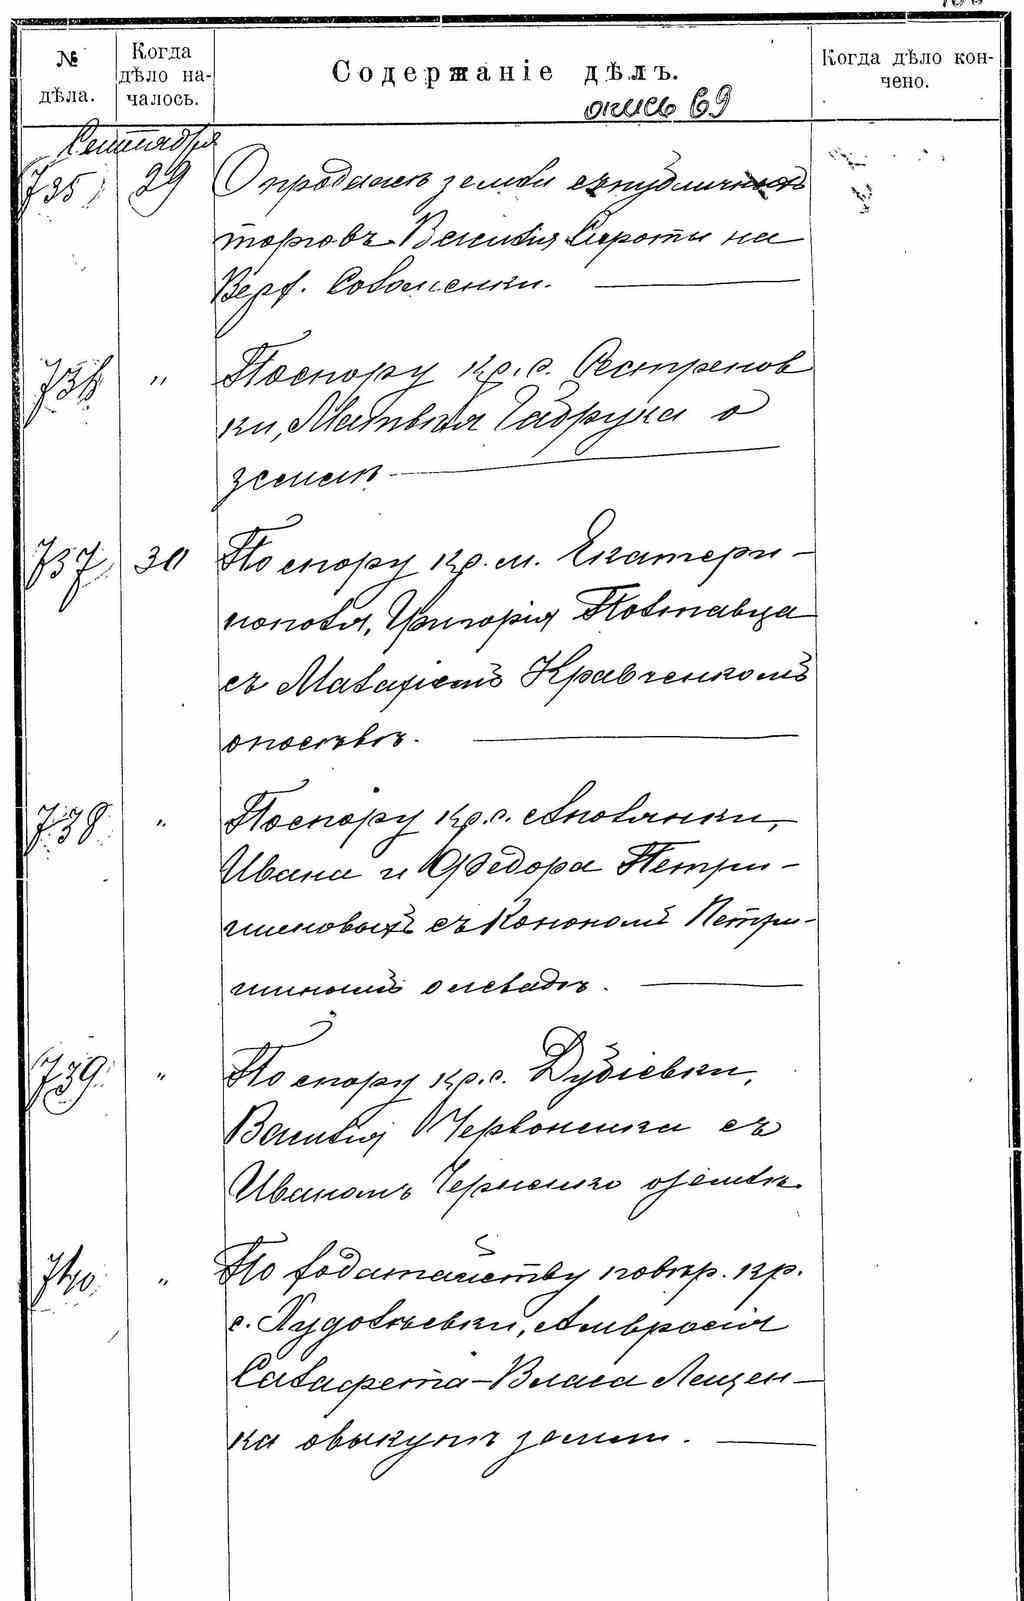 № дѣла.
Когда дѣло началось.
Содержаніе дѣлъ.
Когда дѣло кончено.
опись 69
Сентября
735 29 О продажѣ земли съ публичныхъ
торговъ Василія Сироты на
Верх. Соломенки.
736 " По спору кр. с. Сестренов
ки, Матвѣя Габрука о
землѣ
737 30 По спору кр. м. Екатери-
нополя, Григорія Полтавца
съ Макаріемъ Кравченкомъ
о посѣвѣ.
738 " По спору кр. с. Аполянки,
Ивана и Федора Петри-
шиновыхъ съ Конономъ Петри-
шинымъ о левадѣ.
739 " По спору кр. с. Дубіевки,
Василія Червоненка съ
Иваномъ Черненко о землѣ.
740 " По ходатайству повѣр. кр.
с. Худолѣевки, Амвросія
Саландрета-Власа Лещен-
ка о выкупѣ земли.